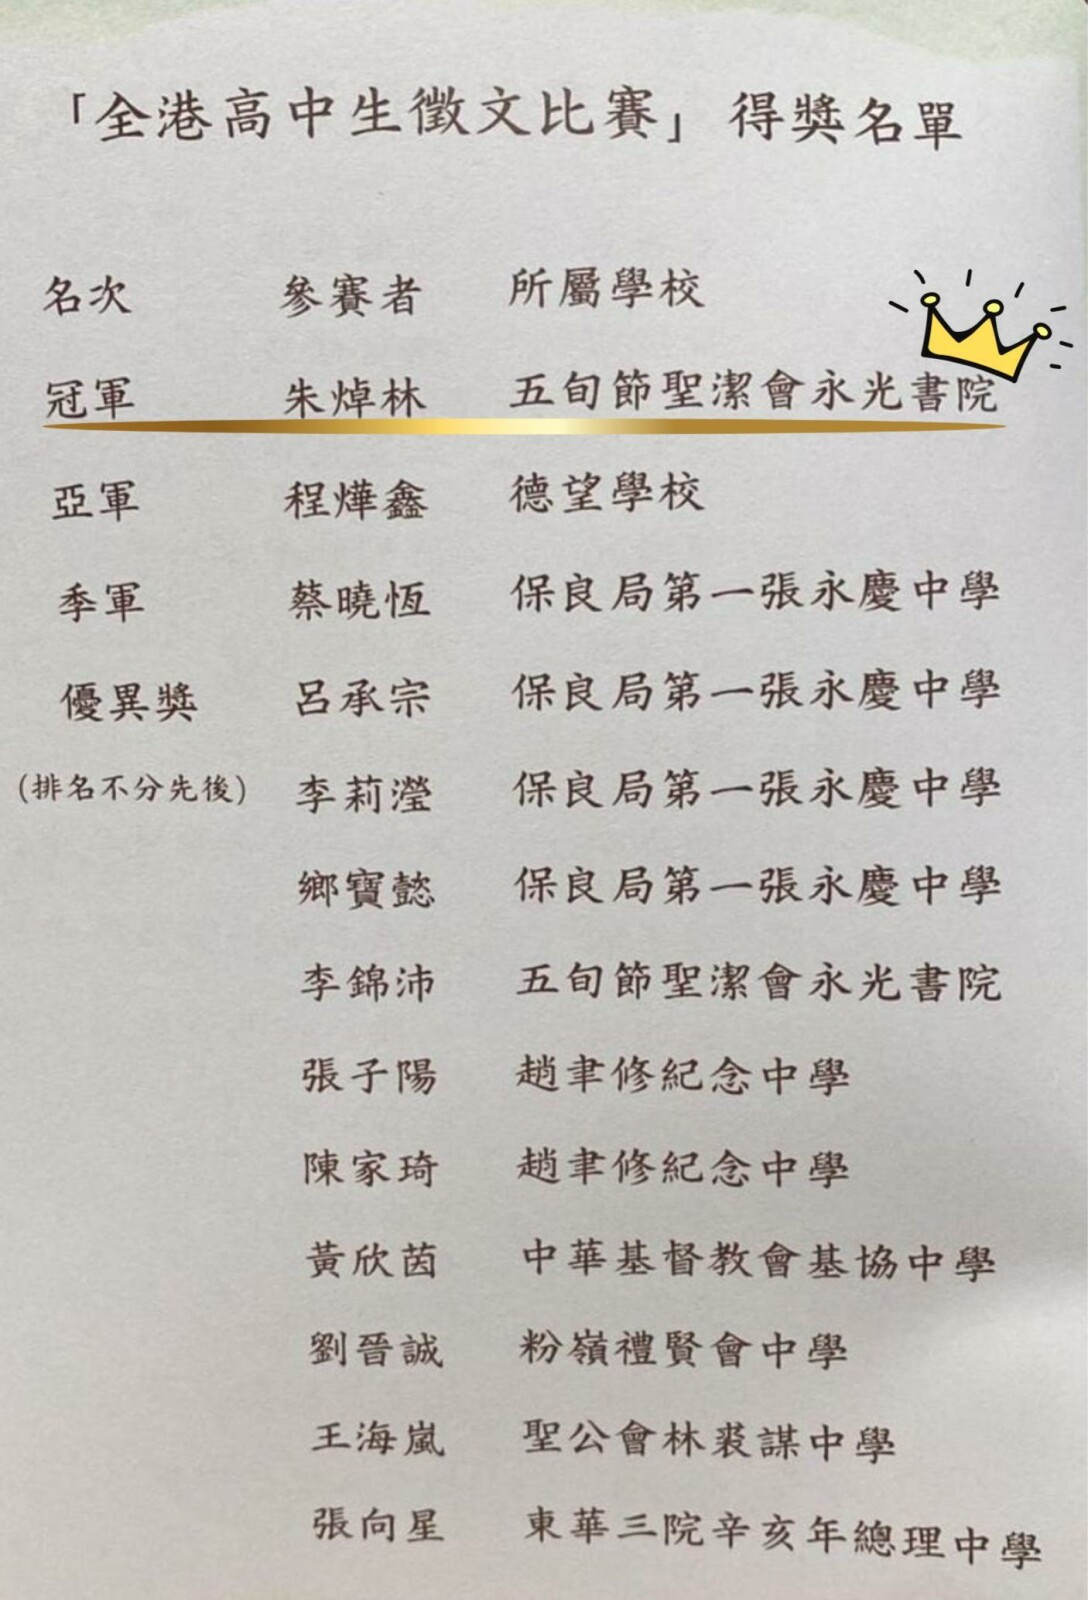 「全港高中生徵文比賽」得獎名單
名次 參賽者 所屬學校
冠軍 朱焯林 五旬節聖潔會永光書院
亞軍 程燁鑫 德望學校
季軍 蔡曉恆 保良局第一張永慶中學
優異獎 呂承宗 保良局第一張永慶中學
(排名不分先後) 李莉瀅 保良局第一張永慶中學
鄉寶懿 保良局第一張永慶中學
李錦沛 五旬節聖潔會永光書院
張子陽 趙聿修紀念中學
陳家琦 趙聿修紀念中學
黃欣茵 中華基督教會基協中學
劉晉誠 粉嶺禮賢會中學
王海嵐 聖公會林裘謀中學
張向星 東華三院辛亥年總理中學